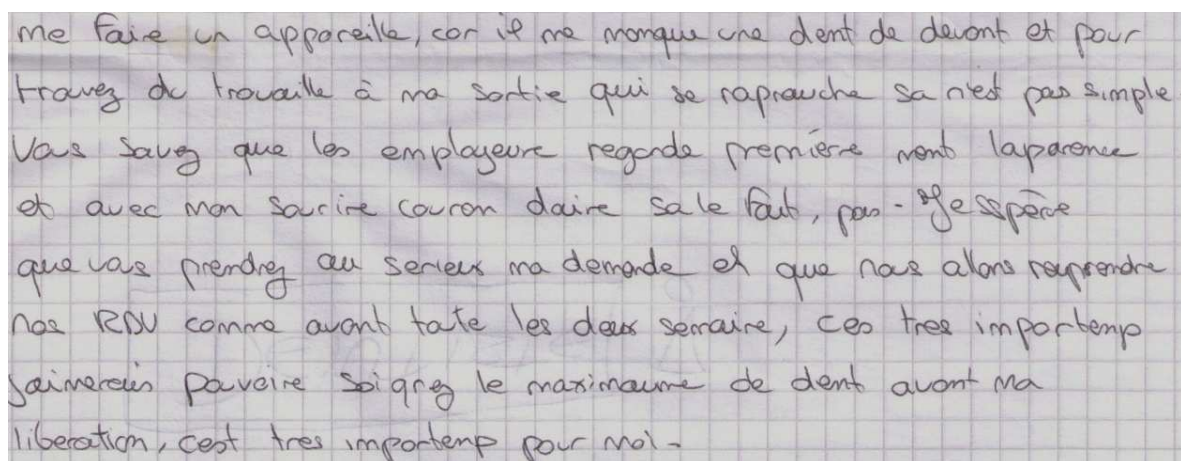 me faire un appareille, car il me manque une dent de devant et pour
travez du travaille à ma sortie qui se raprouche sa n'est pas simple
Vous savez que les employeure regarde première ment laparence
et avec mon sourire couron daire sa le fait, pas - Jesspère
que vous prendrez au serieux ma demande et que nous allons reuprendre
nos RDV comme avant toute les deux semaine, ces tres importemp
jaimerais pouvoire soignez le maximaume de dent avant ma
liberation, cest tres importemp pour moi -